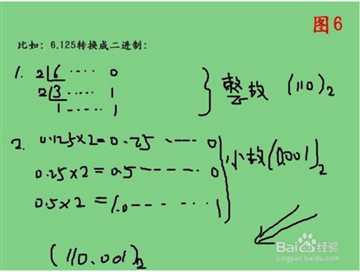 图6
比如：6.125转换成二进制：
1. 2|6 ···· 0
2|3 ···· 1
1 ·· 1
整数 (110)₂
2. 0.125×2=0.25 ······ 0
0.25×2=0.5 ······ 0
0.5×2=1.0 ······ 1
小数(0.001)₂
(110.001)₂
Baidu经验
jingyan.baidu.com